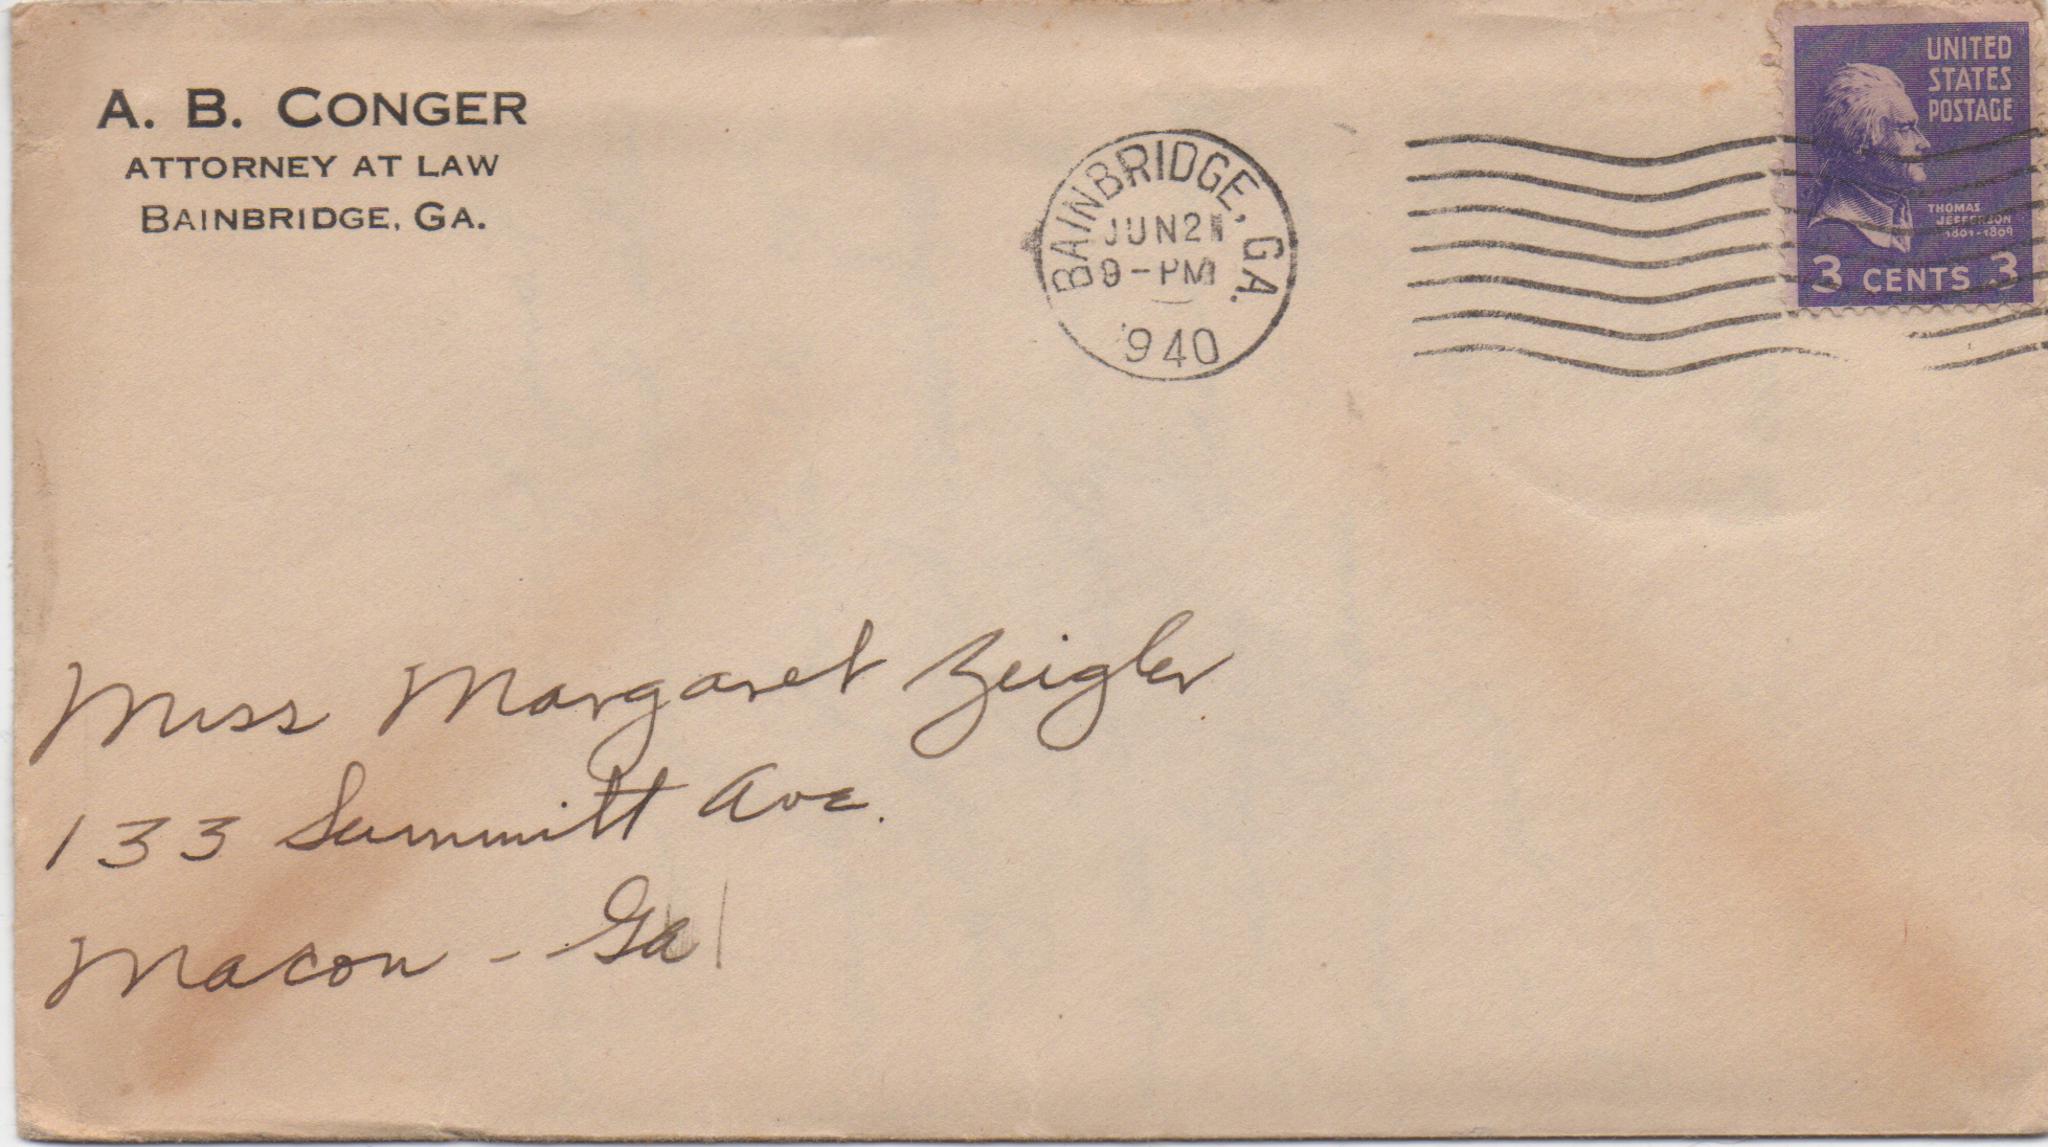 A. B. CONGER
ATTORNEY AT LAW
BAINBRIDGE, GA.
BAINBRIDGE, GA.
JUN 2
9-PM
1940
UNITED
STATES
POSTAGE
THOMAS
JEFFERSON
1801-1809
3 CENTS 3
Miss Margaret Zeigler
133 Summitt Ave.
Macon - - Ga